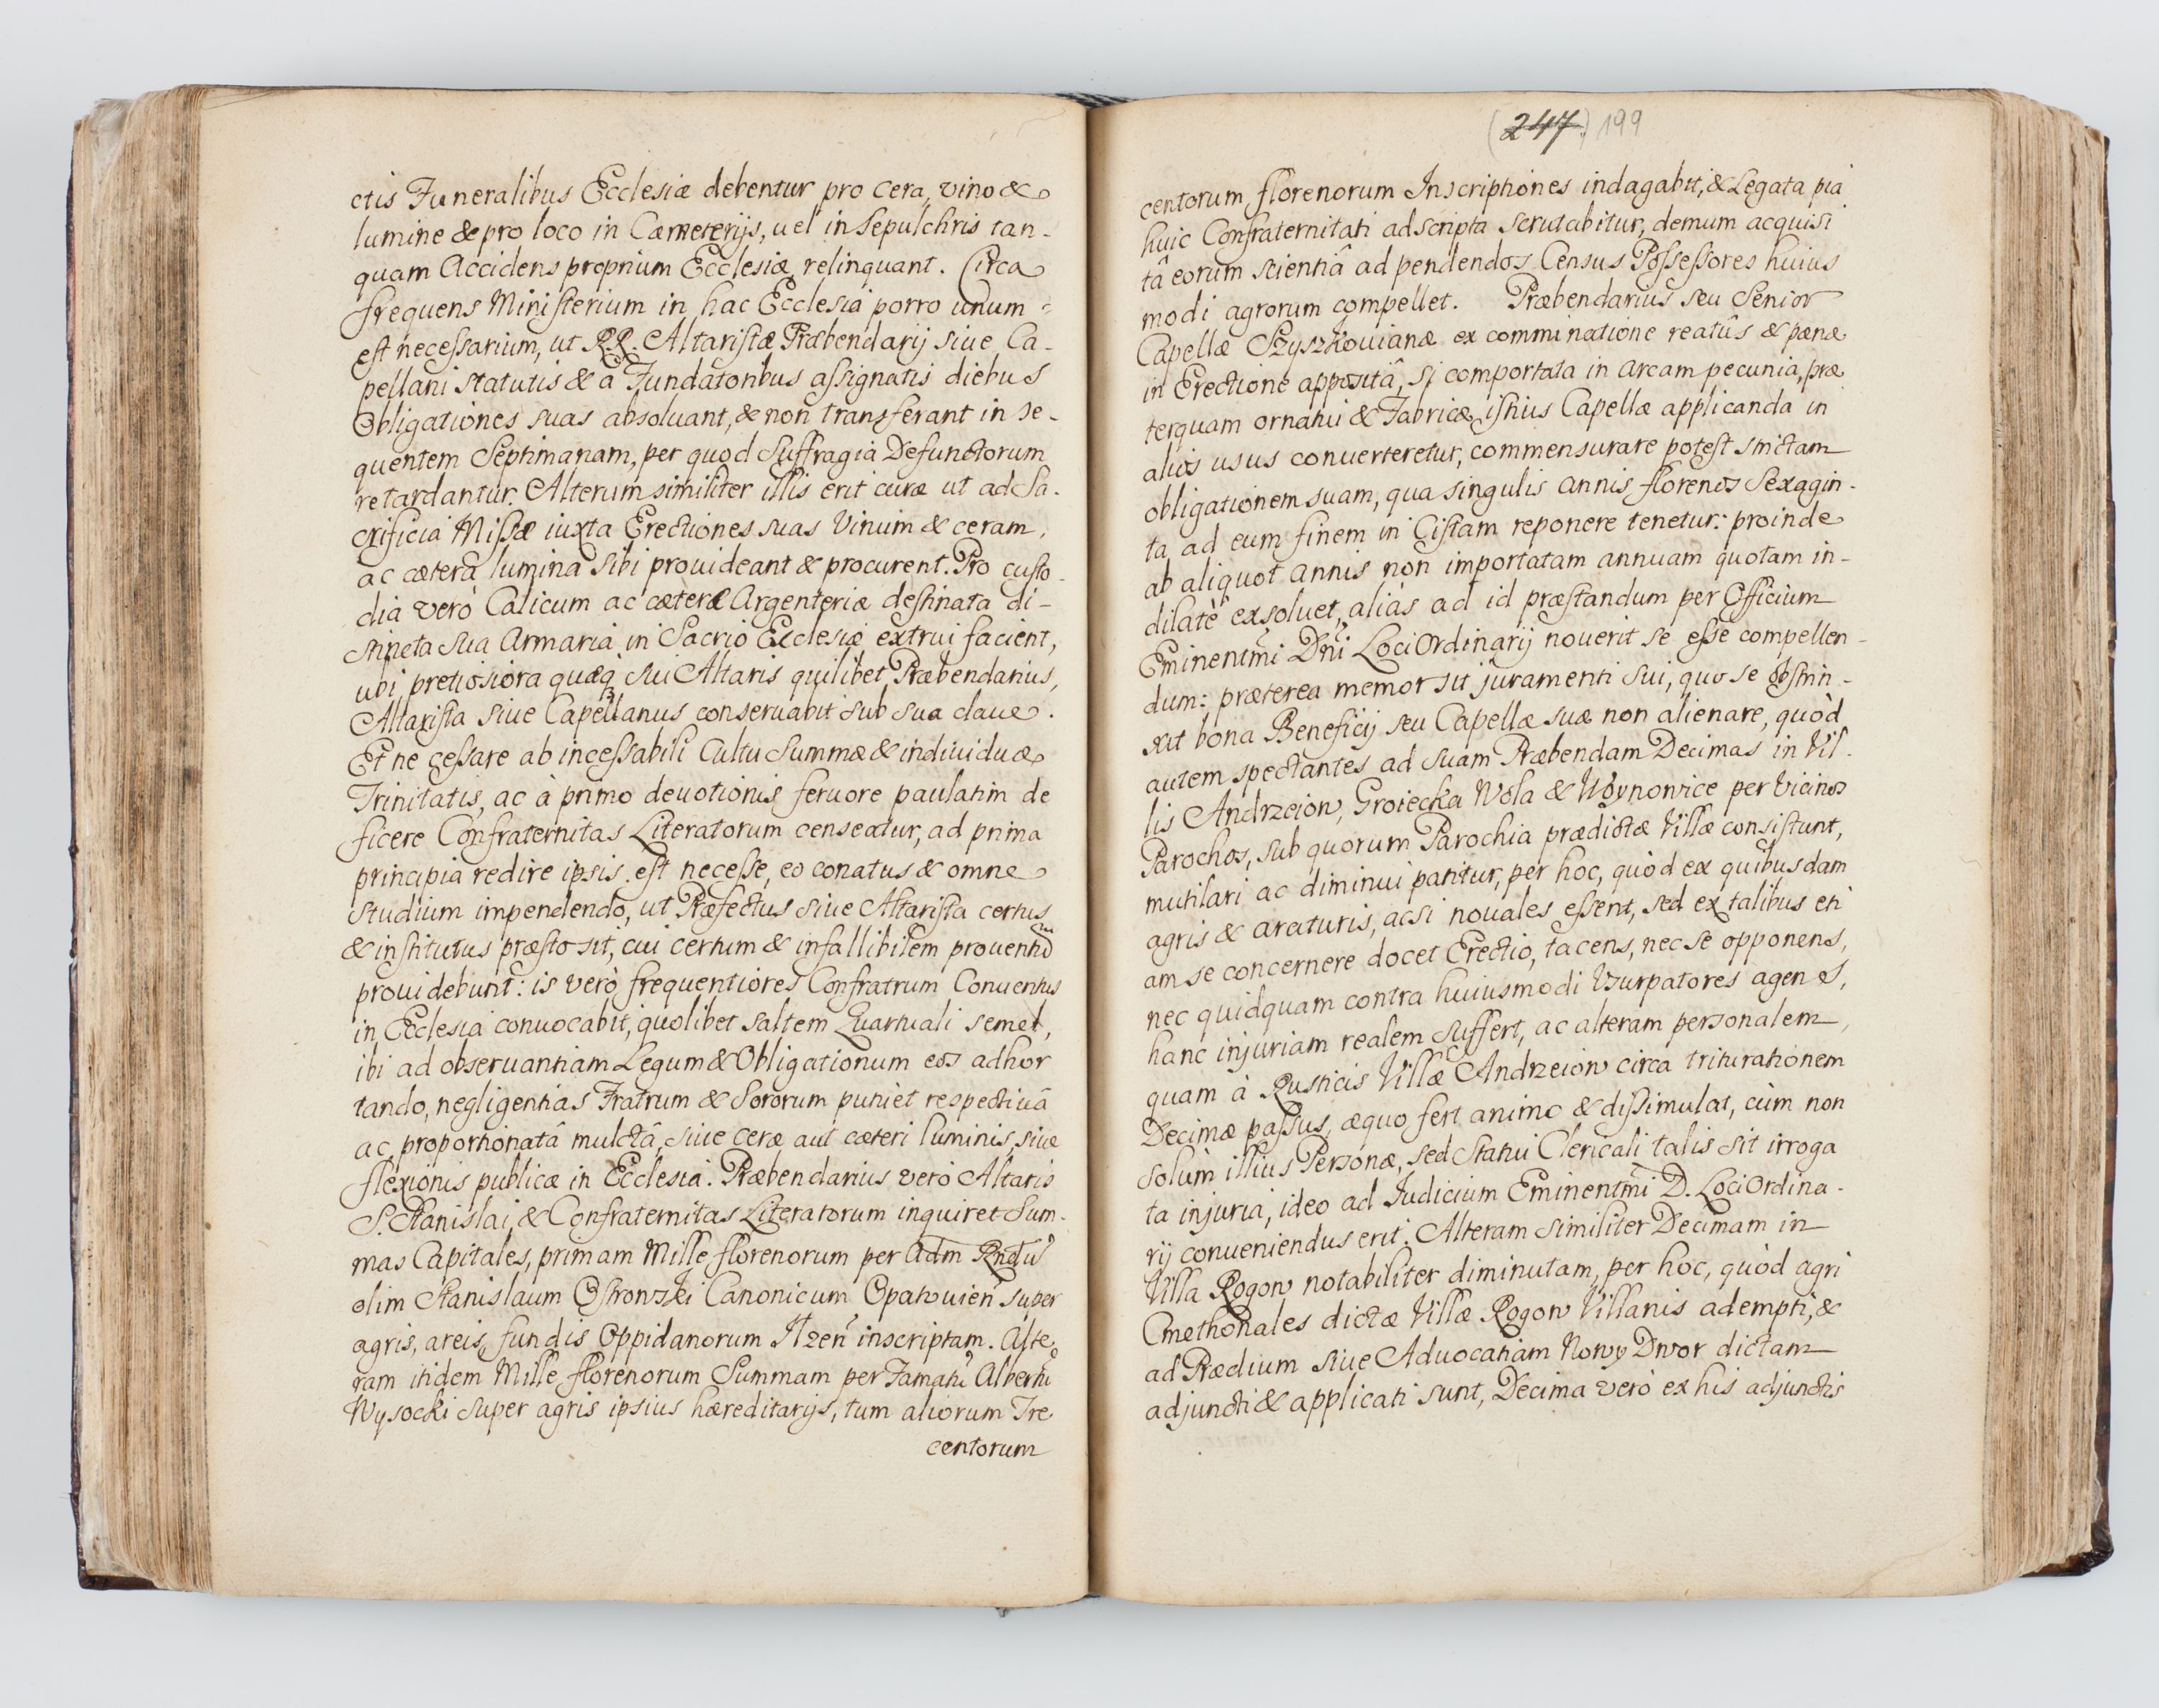 ctis Funeralibus Ecclesiæ debentur pro cera, vino &
lumine & pro loco in Cæmeterijs, uel in Sepulchris tan-
quam Accidens proprium Ecclesiæ relinquant. Circa
frequens Ministerium in hac Ecclesia porro unum =
est necessarium, ut R.R. Altaristæ Præbendarij siue Ca-
pellani statutis & a Fundatoribus assignatis diebus
Obligationes suas absoluant, & non transferant in se-
quentem Septimanam, per quod Suffragia Defunctorum
retardantur. Alterum similiter illis erit curæ ut ad Sa-
crificia Missæ iuxta Erectiones suas Vinum & ceram,
ac cætera lumina sibi prouideant & procurent. Pro custo-
dia verò Calicum ac cæteræ Argenteriæ destinata di-
stincta sua Armaria in Sacrio Ecclesiæ extrui facient,
ubi pretiosiora quæq sui Altaris quilibet Præbendarius,
Altarista siue Capellanus conseruabit sub sua claue.
Et ne cessare ab incessabili Cultu Summæ & indiuiduæ
Trinitatis, ac à primo deuotionis feruore paulatim de
ficere Confraternitas Literatorum censeatur, ad prima
principia redire ipsis est necesse, eo conatus & omne
studium impendendo, ut Præfectus siue Altarista certus
& institutus præsto sit, cui certum & infallibilem prouentũ
prouidebunt: is verò frequentiores Confratrum Conuentus
in Ecclesia conuocabit, quolibet saltem Quartuali semel,
ibi ad obseruantiam Legum & Obligationum eos adhor
tando, negligentias Fratrum & Sororum puniet respectiuâ
ac proportionatâ mulctâ, siue ceræ aut cæteri luminis, siue
flexionis publicæ in Ecclesia. Præbendarius verò Altaris
S. Stanislai, & Confraternitas Literatorum inquiret Sum-
mas Capitales, primam Mille florenorum per Adm Rndũ
olim Stanislaum Ostrowski Canonicum Opatouien super
agris, areis, fundis Oppidanorum Ilzen inscriptam. Alte-
ram itidem Mille florenorum Summam per Famatũ Albertũ
Wysocki super agris ipsius hæreditarijs, tum aliorum Tre
centorum
(247.) 199
centorum florenorum Inscriptiones indagabit, & Legata pia
huic Confraternitati adscripta scrutabitur, demum acquisi
tâ eorum scientiâ ad pendendos Census Possessores huius
modi agrorum compellet. Præbendarius seu Senior
Capellæ Szyszkouianæ ex comminatione reatûs & pænæ
in Erectione appositâ, si comportata in Arcam pecunia, præ
terquam ornatui & Fabricæ istius Capellæ applicanda in
alios usus conuerteretur, commensurare potest strictam
obligationem suam, qua singulis annis florenos Sexagin-
ta ad eum finem in Cistam reponere tenetur: proinde
ab aliquot annis non importatam annuam quotam in-
dilatè exsoluet, aliàs ad id præstandum per Officium
Eminentmi Dni Loci Ordinarij nouerit se esse compellen-
dum: præterea memor sit juramenti sui, quo se obstrin-
xit bona Beneficij seu Capellæ suæ non alienare, quòd
autem spectantes ad suam Præbendam Decimas in Vil-
lis Andrzeiow, Groiecka Wola & Woynowice per vicinos
Parochos, sub quorum Parochia prædictæ Villæ consistunt,
mutilari ac diminui patitur, per hoc, quòd ex quibusdam
agris & araturis, acsi nouales essent, sed ex talibus eti
am se concernere docet Erectio, tacens, nec se opponens,
nec quidquam contra huiusmodi Vsurpatores agens,
hanc injuriam realem suffert, ac alteram personalem,
quam à Rusticis Villæ Andrzeiow circa triturationem
Decimæ passus, æquo fert animo & dissimulat, cùm non
solùm illius Personæ, sed Statui Clericali talis sit irroga
ta injuria, ideo ad Judicium Eminentmi D. Loci Ordina-
rij conueniendus erit. Alteram similiter Decimam in
Villa Rogow notabiliter diminutam, per hoc, quòd agri
Cmethonales dictæ Villæ Rogow Villanis adempti, &
ad Prædium siue Aduocatiam Nowy Dwor dictam
adjuncti & applicati sunt, Decima verò ex his adjunctis